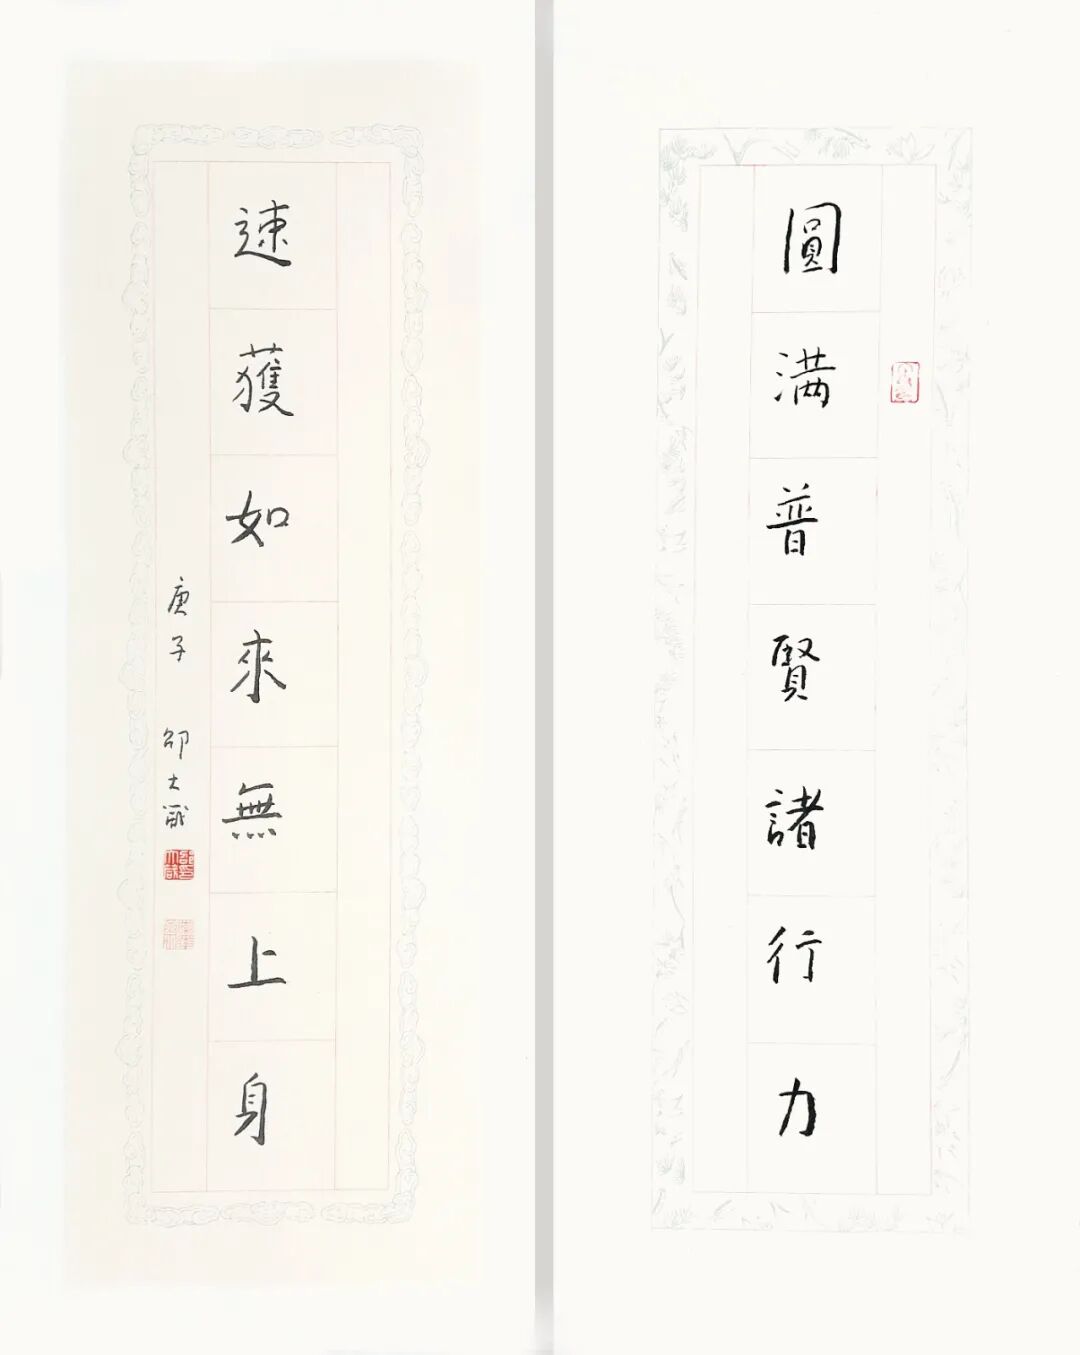 圓满普賢諸行力
速獲如來無上身
庚子 邵大箴